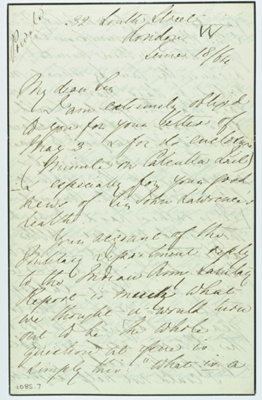 32 South Street
London
June 18/64
My dear Sir
I am extremely obliged
to you for your letter of
May 3. & for its enclosed
Minutes on Calcutta
& especially for your good
news of Sir John Lawrence's
health
Your account of the
Military Department reply
to the Indian Army Sanitary
Report is merely what
we thought it would turn
out to be. The whole
question at issue is
simply this "What is a
1095.7